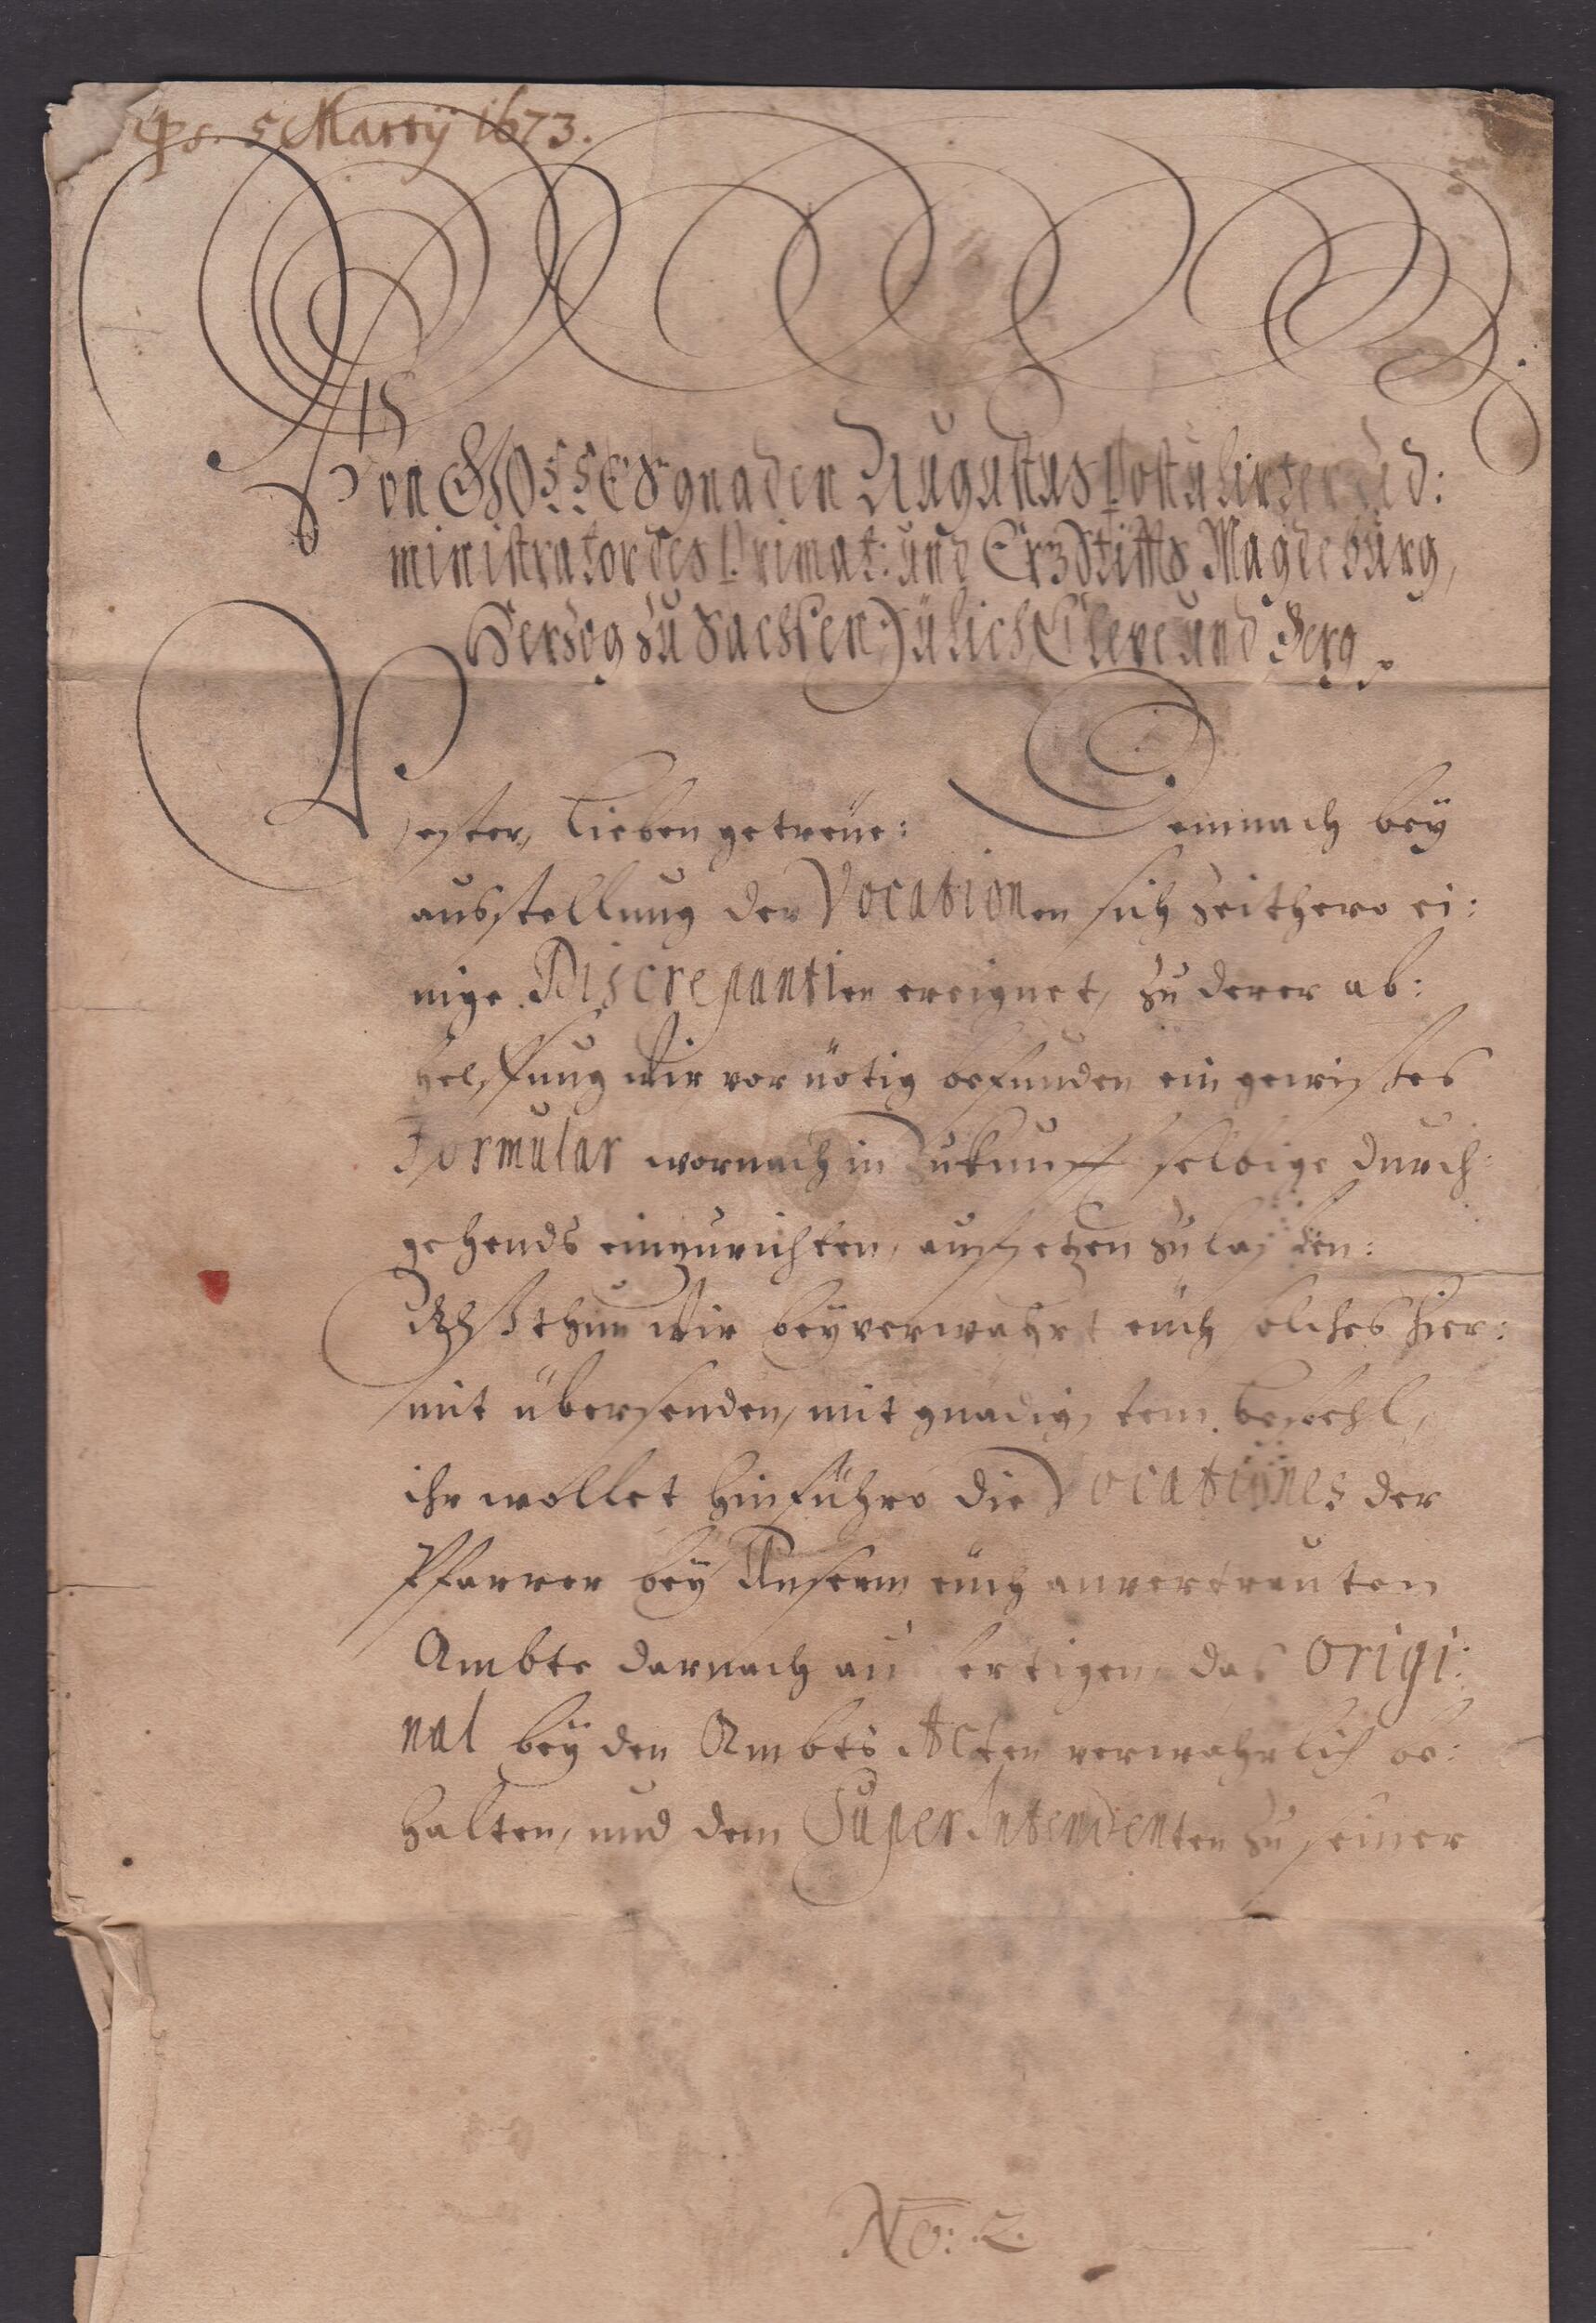 ps. 5 Martij 1673.
Von GOTTES gnaden Augustus Postulirter Ad:
ministrator des Primat: und Erz Stiffts Magdeburg,
Herzog zu Sachsen, Jülich, Cleve und Berg
Vester, Lieben getreüe: Demnach bey
ausstellung der Vocationen sich zeithero ei:
nige Discrepantien ereignet, zu derer ab:
helffung Wir vor nötig befunden ein gewisses
Formular wornach in Zukunfft selbige durch:
gehends einzurichten, auffsetzen zu lassen:
Alß thun Wir beyverwahrt euch solches hier:
mit übersenden, mit gnädigstem befehl,
ihr wollet hinführo die Vocationes der
Pfarrer bey Unserm euch anvertrauten
Ambte darnach ausfertigen, das Origi:
nal bey den Ambts Acten verwahrlich be:
halten, und dem Superintendenten zu seiner
No: 2.